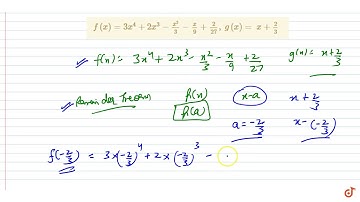 f(x) = 3x⁴ + 2x³ − x²/3 − x/9 + 2/27, g(x) = x + 2/3
f(x) = 3x⁴ + 2x³ − x²/3 − x/9 + 2/27 g(x) = x + 2/3
Remainder Theorem p(x) x-a x + 2/3
p(a) a = -2/3 x - (-2/3)
f(-2/3) = 3×(-2/3)⁴ + 2×(-2/3)³ −